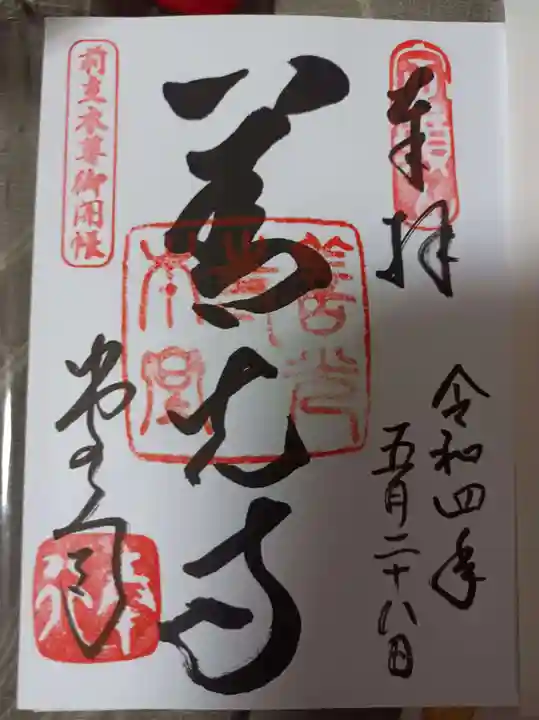 奉拝
令和四年
五月二十八日
善光寺
善光寺本堂
前立本尊御開帳